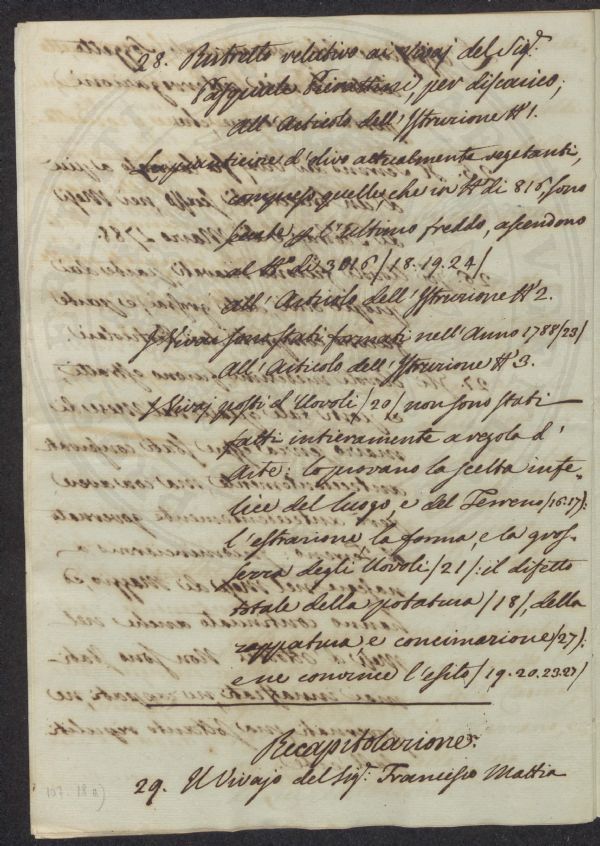 28. Ristretto relativo ai Vivaj del Sig.r
Pasquale Pierattini, per discarico;
all' Articolo dell' Istruzione N.o 1.
Le pianticine d'olivo attualmente vegetanti,
comprese quelle che in N.o di 816, sono
perite p. l'ultimo freddo, ascendono
al N.o di 3016 / 18. 19. 24 /
all' Articolo dell' Istruzione N.o 2.
I Vivai sono stati formati nell' Anno 1788 / 23 /
all' Articolo dell' Istruzione N.o 3.
I Vivaj posti d' Uovoli / 20 / non sono stati
fatti intieramente a regola d'
Arte: lo provano la scelta infe-
lice del luogo, e del Terreno / 16. 17 /:
l'estrazione, la forma, e la gros-
sezza degli Uovoli / 21 /: il difetto
totale della potatura / 18 /, della
zappatura, e concimazione / 27 /:
e ne convince l'esito / 19. 20. 23. 27 /
Recapitolazione.
29. Il Vivajo del Sig.r Francesco Mattia
107. 18 a)